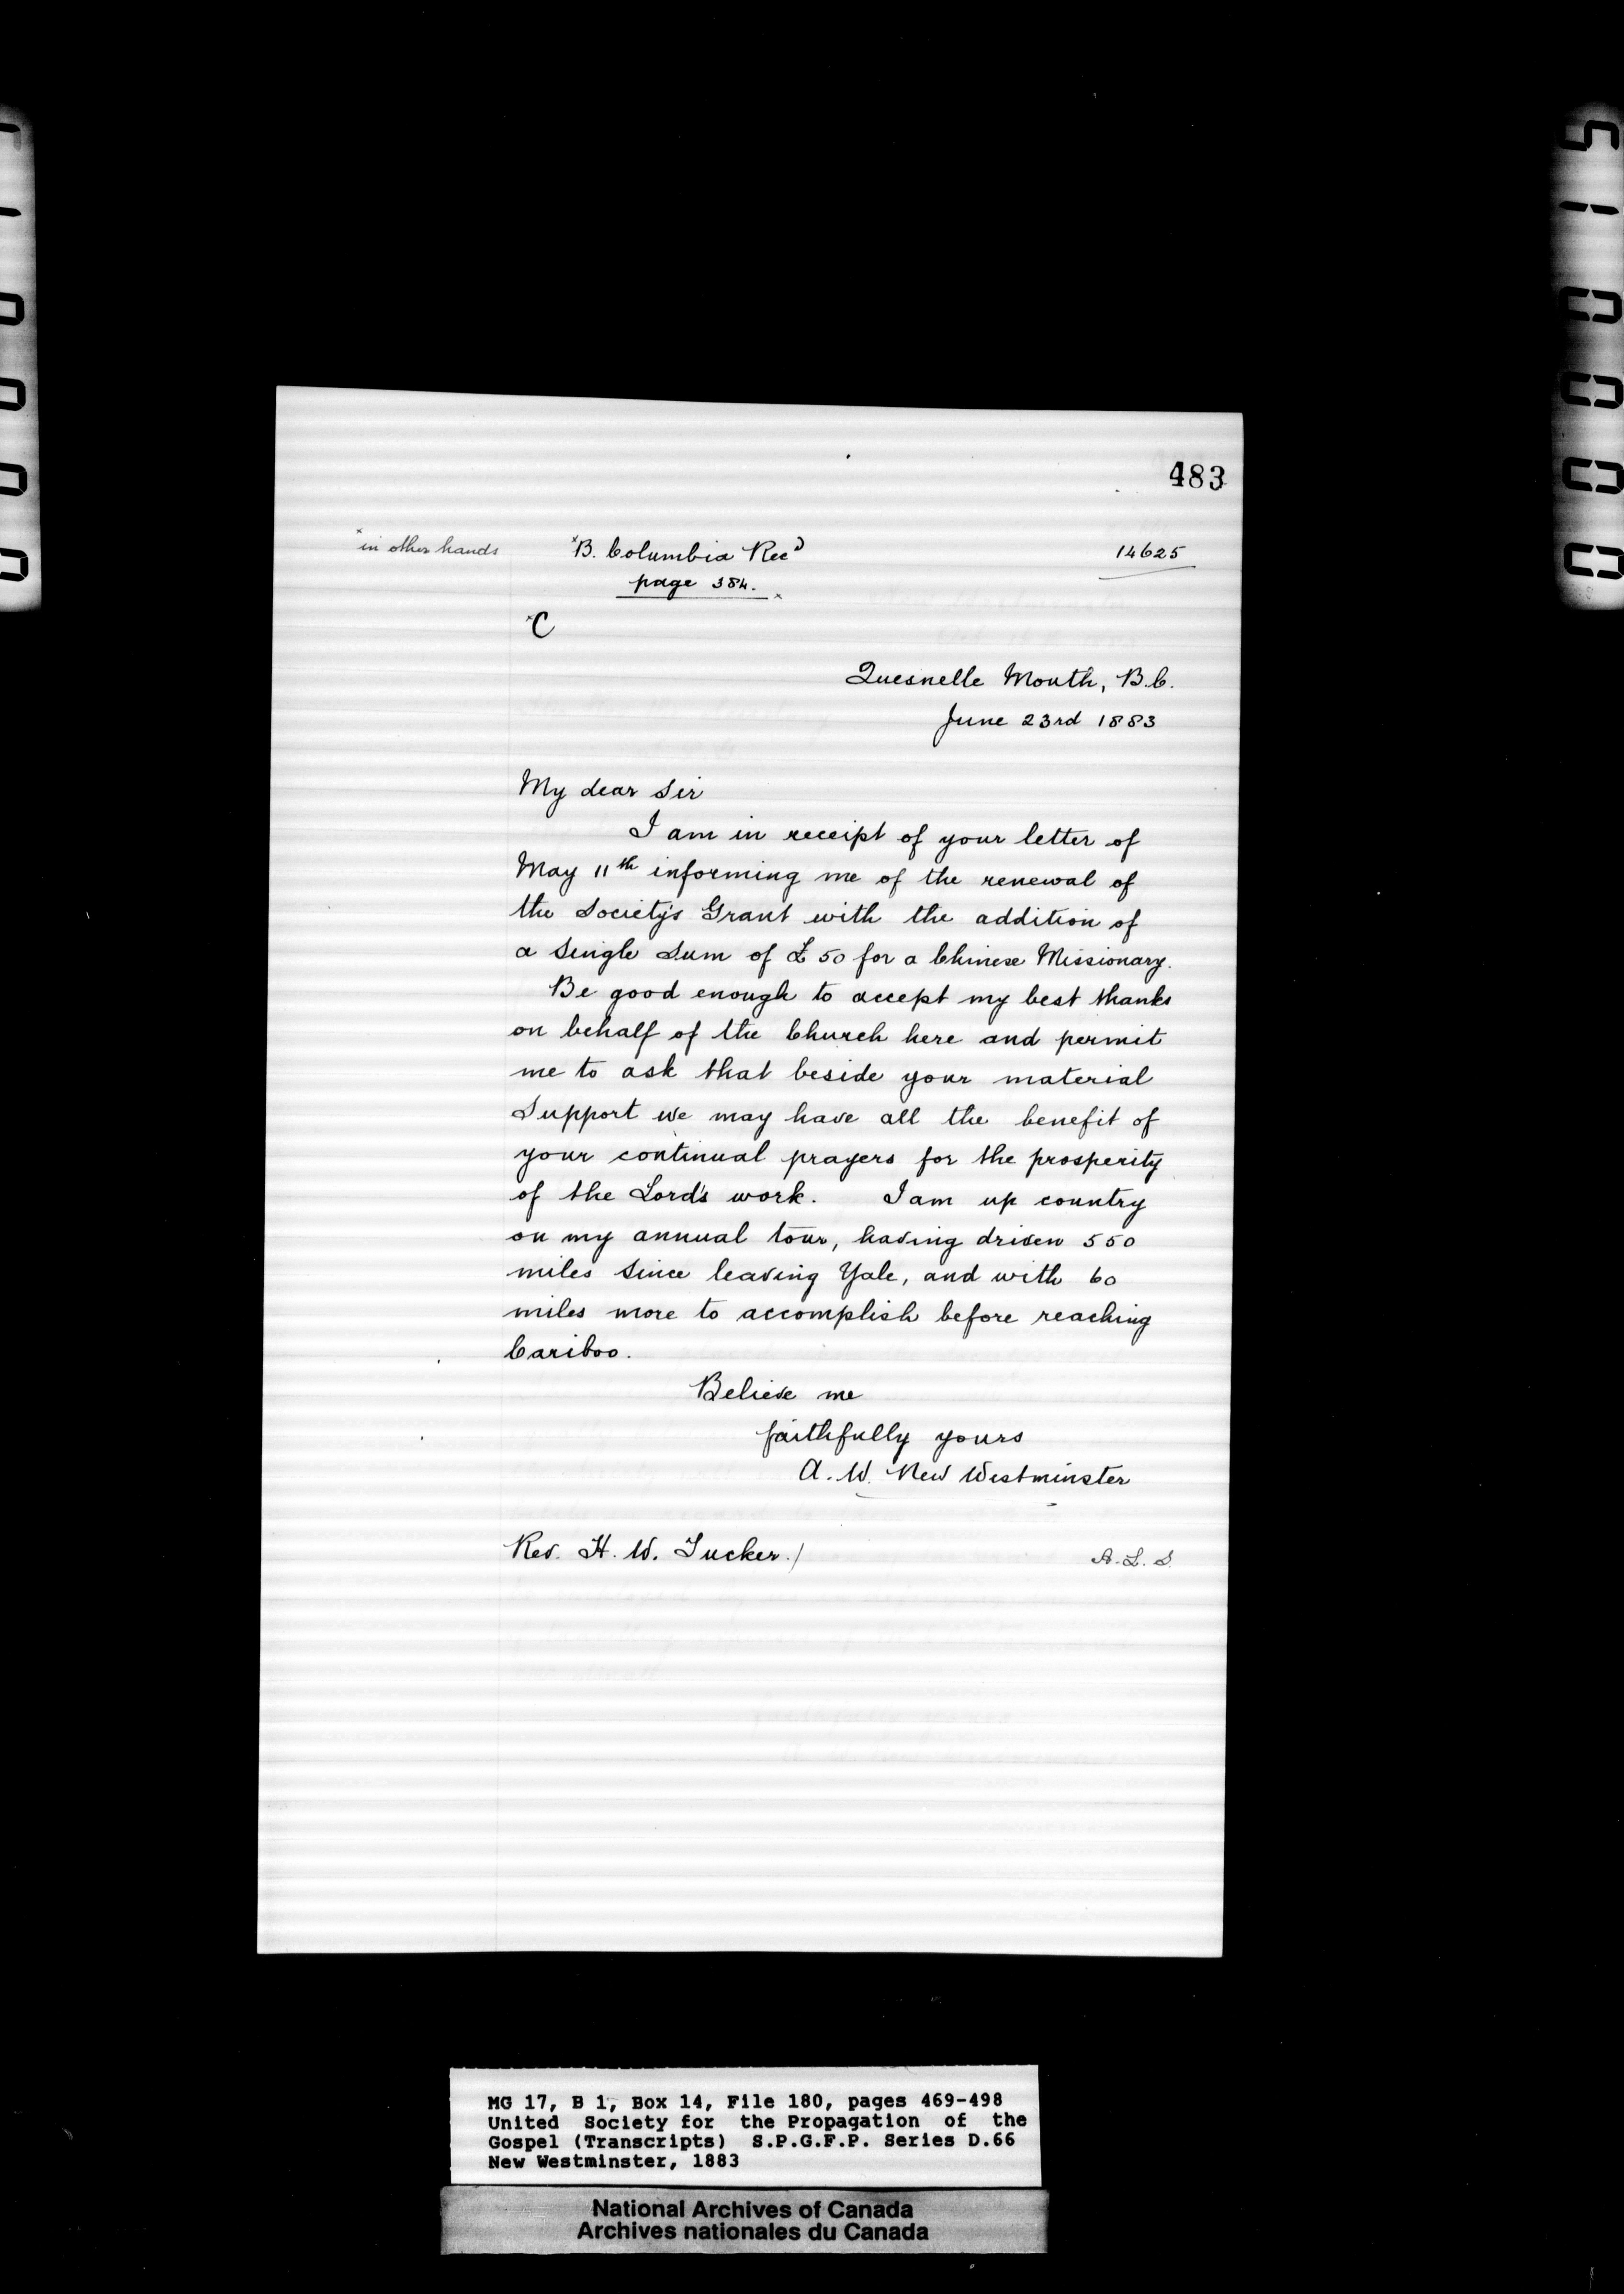 483
x in other hands
x B. Columbia Recd
page 384. x
14625
x C
Quesnelle Mouth, B.C.
June 23rd 1883
My dear Sir
I am in receipt of your letter of
May 11th informing me of the renewal of
the Society's Grant with the addition of
a single sum of £50 for a Chinese Missionary.
Be good enough to accept my best thanks
on behalf of the Church here and permit
me to ask that beside your material
Support we may have all the benefit of
your continual prayers for the prosperity
of the Lord's work. I am up country
on my annual tour, having driven 550
miles since leaving Yale, and with 60
miles more to accomplish before reaching
Cariboo.
Believe me
faithfully yours
A. W. New Westminster
Rev. H. W. Tucker.)
A. L. S.
MG 17, B 1, Box 14, File 180, pages 469-498
United Society for the Propagation of the
Gospel (Transcripts) S.P.G.F.P. Series D.66
New Westminster, 1883
National Archives of Canada
Archives nationales du Canada